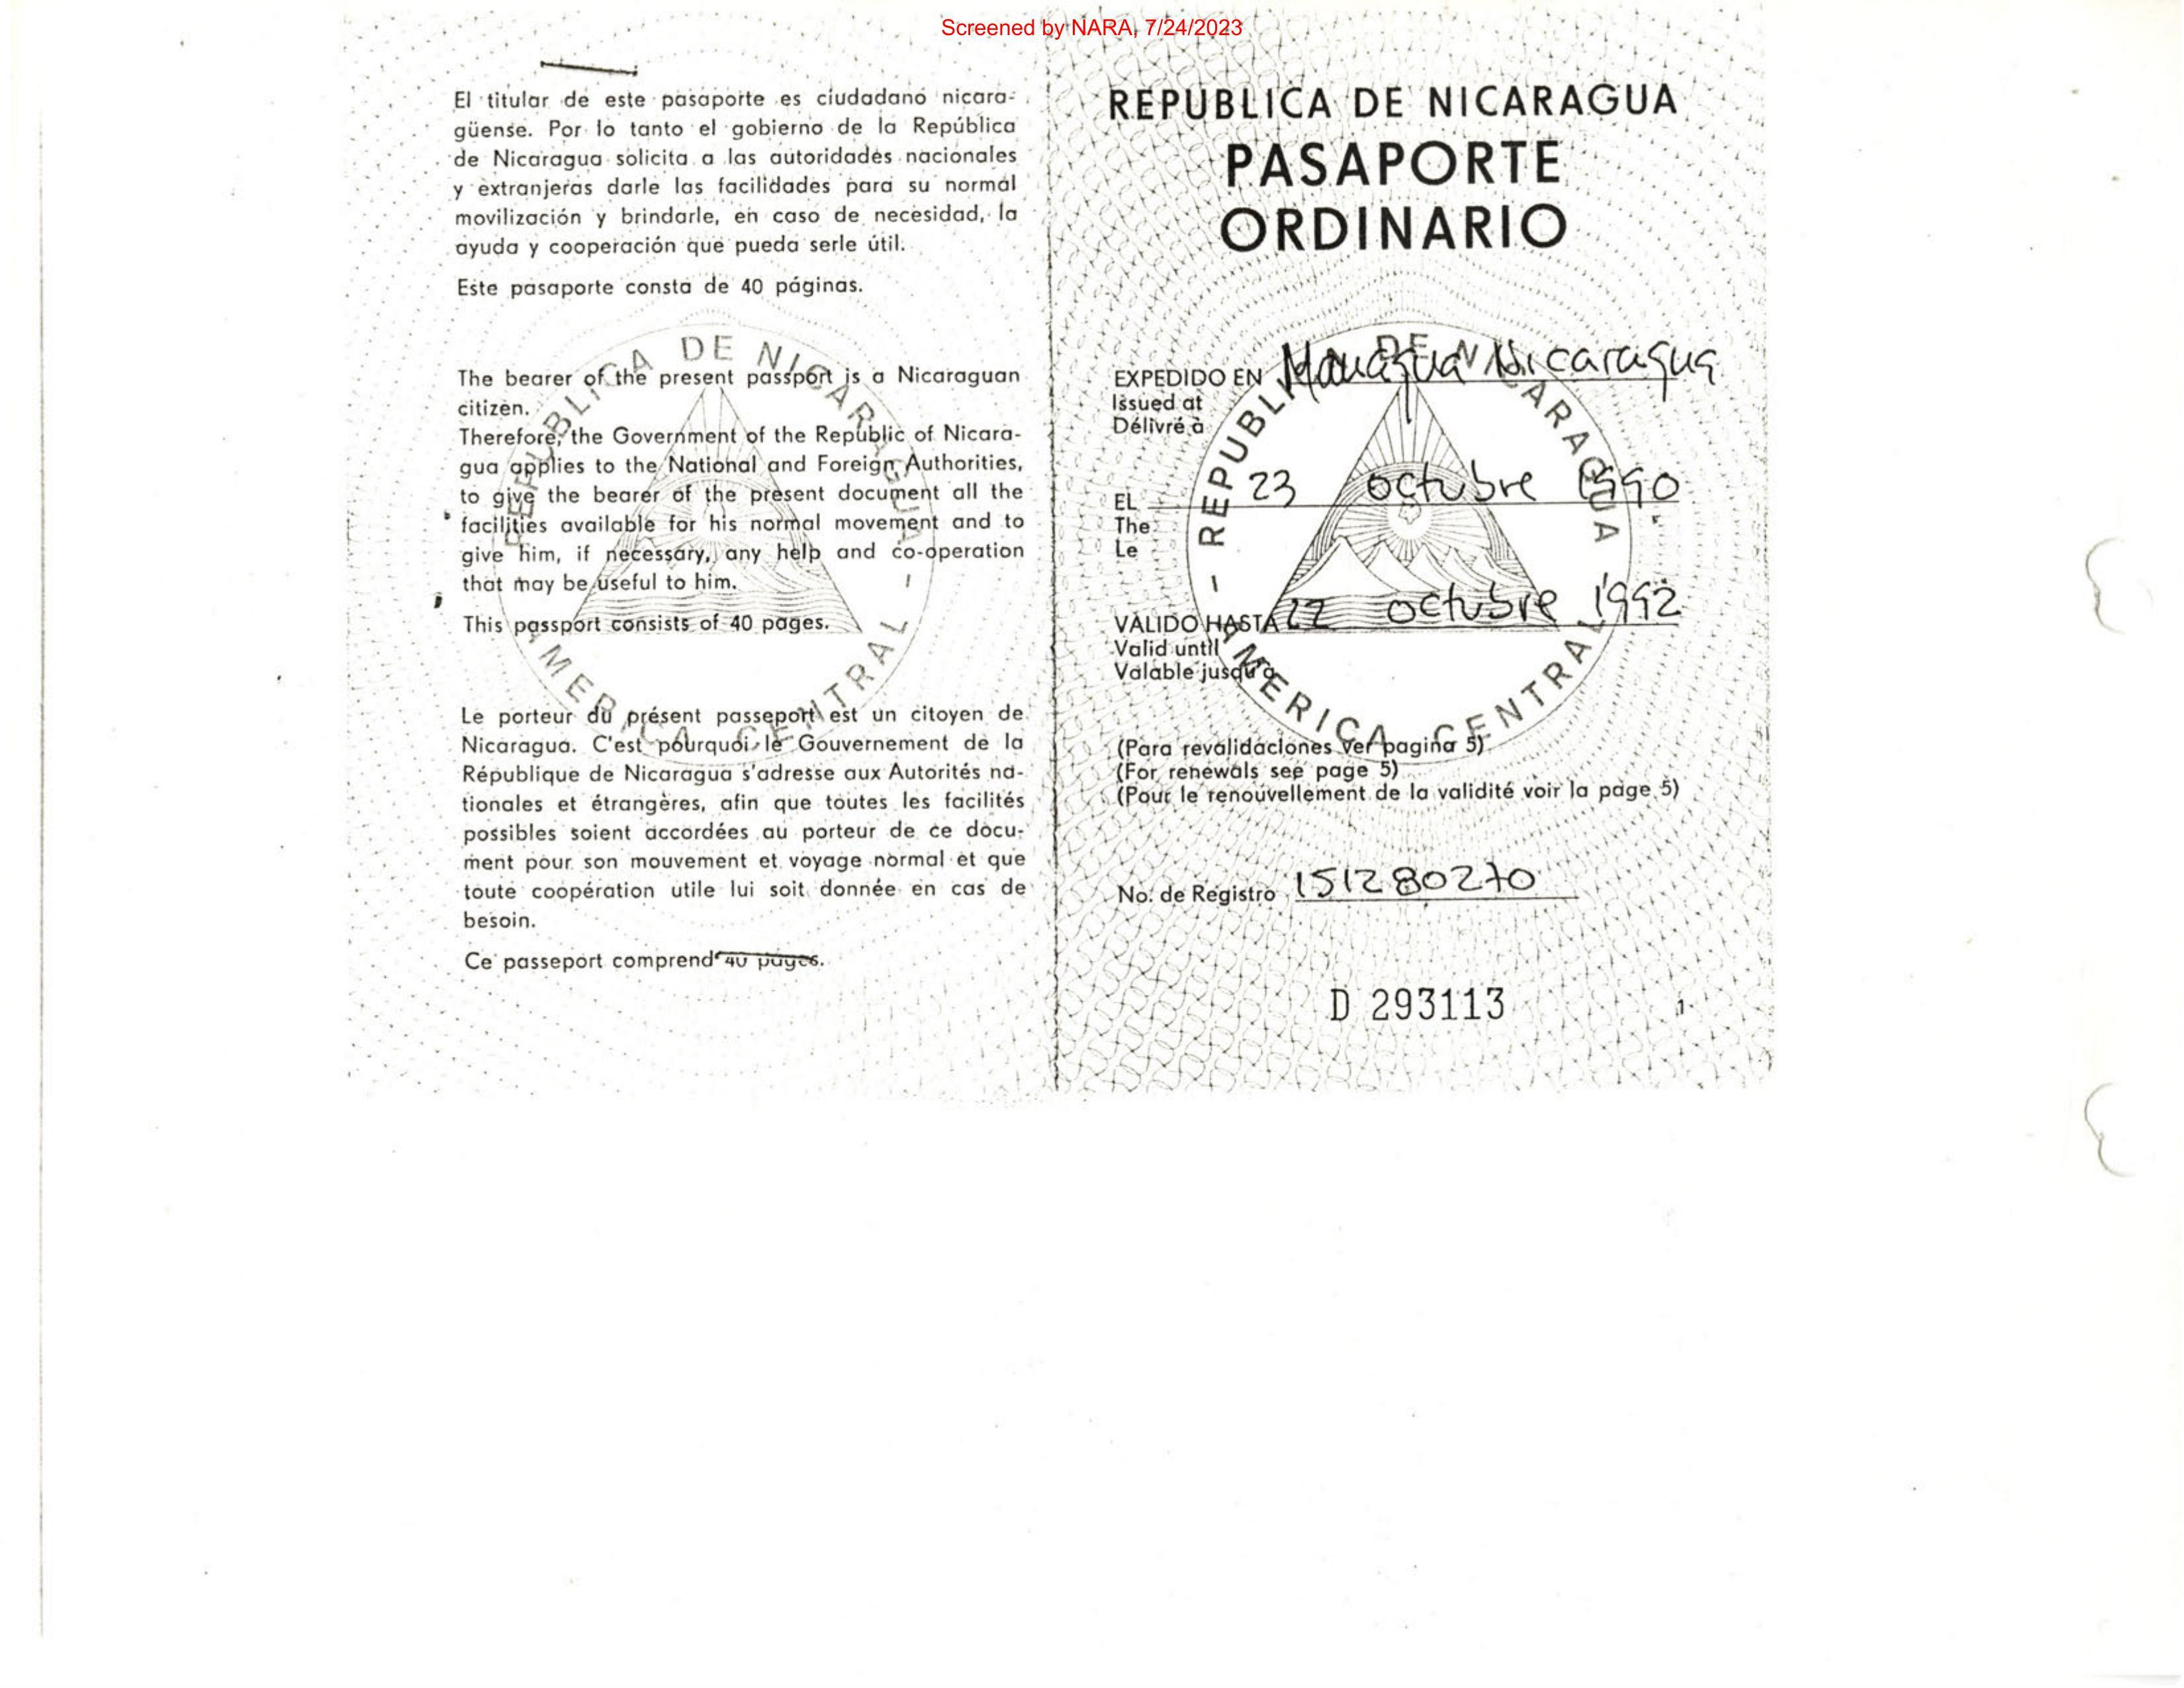 Screened by NARA, 7/24/2023
El titular de este pasaporte es ciudadano nicara-
güense. Por lo tanto el gobierno de la República
de Nicaragua solicita a las autoridades nacionales
y extranjeras darle las facilidades para su normal
movilización y brindarle, en caso de necesidad, la
ayuda y cooperación que pueda serle útil.
Este pasaporte consta de 40 páginas.
The bearer of the present passport is a Nicaraguan
citizen.
Therefore, the Government of the Republic of Nicara-
gua applies to the National and Foreign Authorities,
to give the bearer of the present document all the
facilities available for his normal movement and to
give him, if necessary, any help and co-operation
that may be useful to him.
This passport consists of 40 pages.
Le porteur du présent passeport est un citoyen de
Nicaragua. C'est pourquoi le Gouvernement de la
République de Nicaragua s'adresse aux Autorités na-
tionales et étrangères, afin que toutes les facilités
possibles soient accordées au porteur de ce docu-
ment pour son mouvement et voyage normal et que
toute coopération utile lui soit donnée en cas de
besoin.
Ce passeport comprend 40 pages.
REPUBLICA DE NICARAGUA
AMERICA CENTRAL
REPUBLICA DE NICARAGUA
PASAPORTE
ORDINARIO
EXPEDIDO EN Managua Nicaragua
Issued at
Délivré à
EL 23 octubre 1990
The
Le
VALIDO HASTA 22 octubre 1992
Valid until
Valable jusqu'a
REPUBLICA DE NICARAGUA
AMERICA CENTRAL
(Para revalidaciones ver pagina 5)
(For renewals see page 5)
(Pour le renouvellement de la validité voir la page 5)
No. de Registro 151280270
D 293113
1